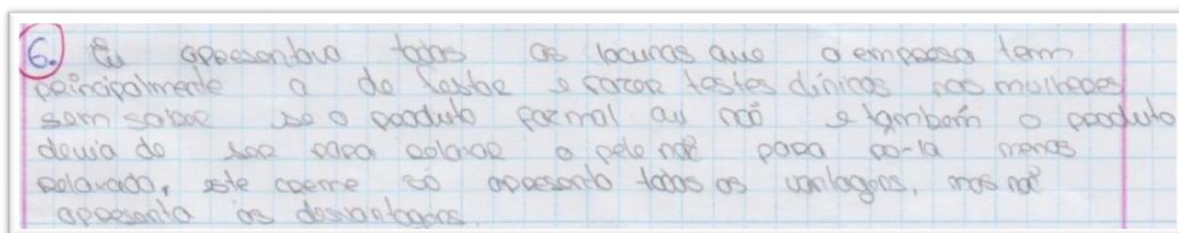 6. Eu apresentava todas as lacunas que a empresa tem
principalmente a de testar e fazer testes clínicos nas mulheres
sem saber se o produto formal ou não e também o produto
devia de ser para relaxar a pele não para po-la menos
relaxada, este creme só apresenta todas as vantagens, mas não
apresenta as desvantagens.